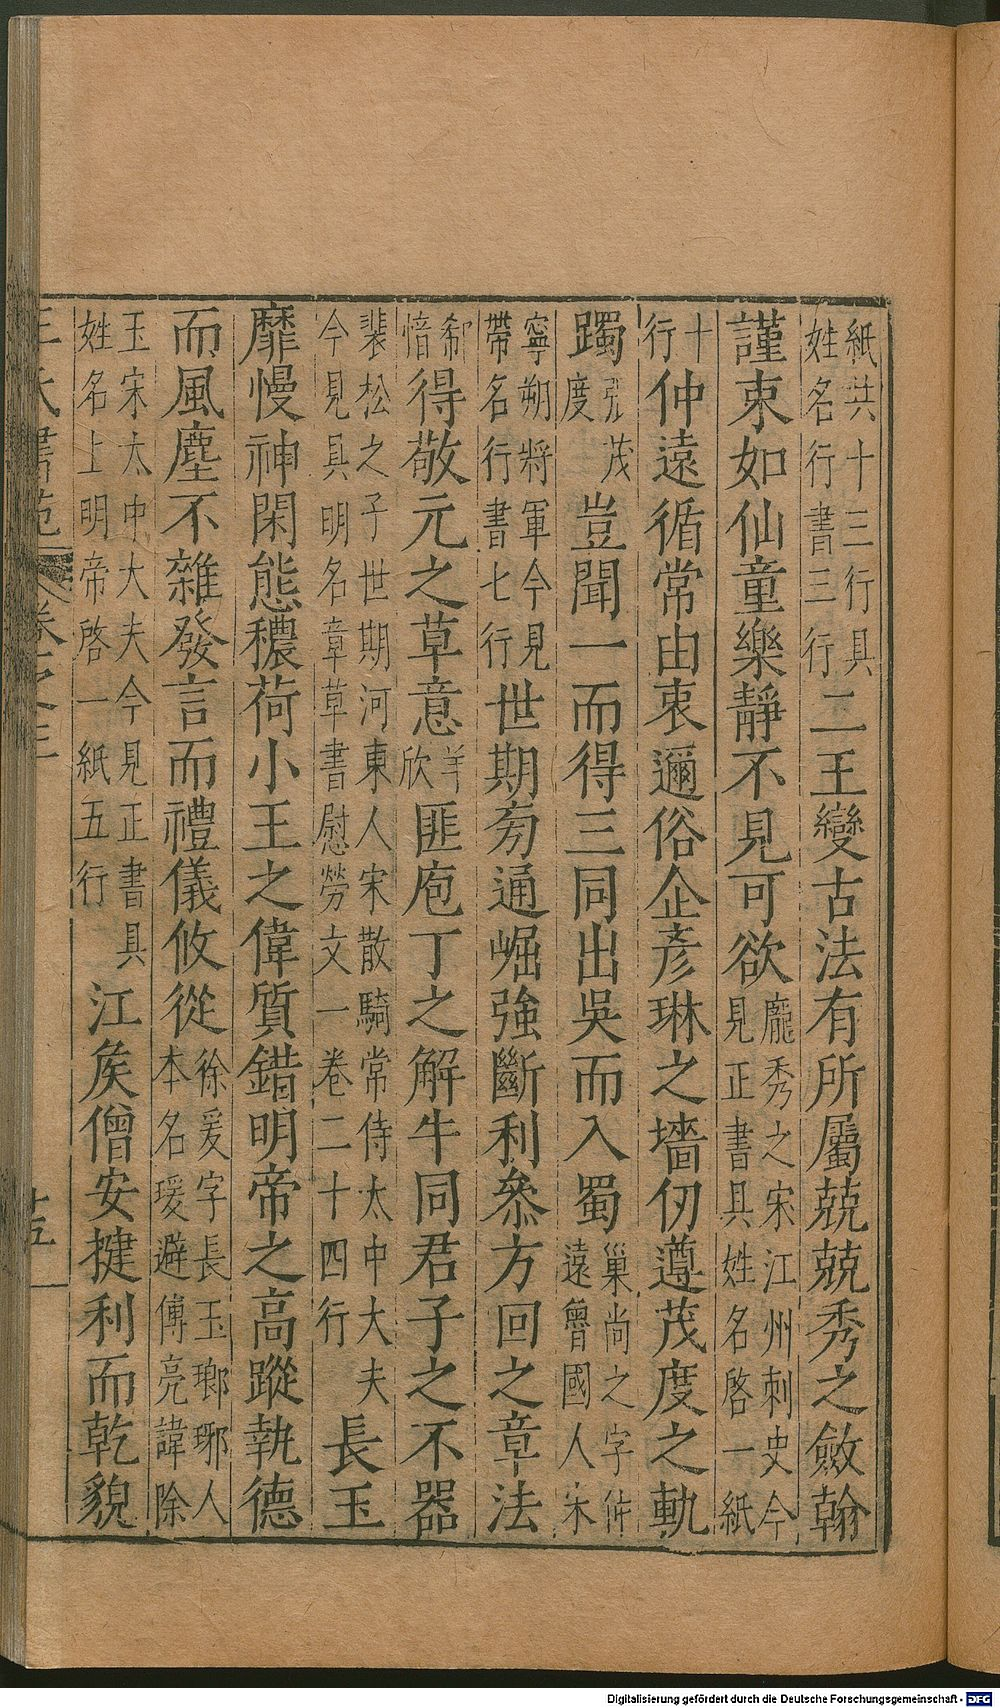 紙共十三行具姓名行書三行二王變古法有所屬兢兢秀之斂翰
謹束如仙童樂靜不見可欲龐秀之宋江州刺史今見正書具姓名啓一紙
十行仲遠循常由衷邇俗企彥琳之墻仞遵茂度之軌
躅張茂度豈聞一而得三同出吳而入蜀巢尚之字仲遠魯國人宋
寧朔將軍今見帶名行書七行世期旁通崛強斷利叅方回之章法
郗愔得敬元之草意羊欣匪庖丁之解牛同君子之不器
裴松之子世期河東人宋散騎常侍太中大夫今見具明名章草書慰勞文一卷二十四行長玉
靡慢神閑態穠荷小王之偉質錯明帝之高蹤執德
而風塵不雜發言而禮儀攸從徐爰字長玉瑯琊人本名瑗避傅亮諱除
玉宋太中大夫今見正書具姓名上明帝啓一紙五行江矦僧安揵利而乾貌
王氏書苑 卷之三 十五
Digitalisierung gefördert durch die Deutsche Forschungsgemeinschaft - DFG